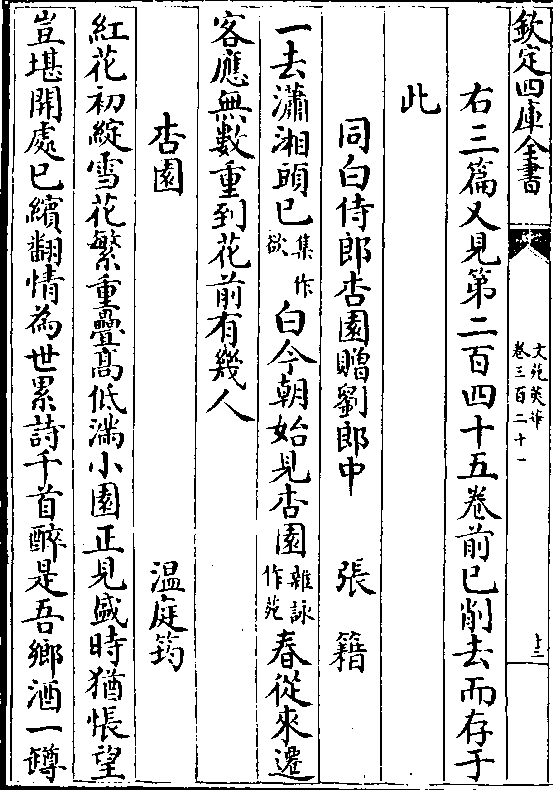 欽定四庫全書
文苑英華
卷三百二十一
十三
右三篇又見第二百四十五卷前已削去而存于
此
同白侍郎杏園贈劉郎中　張籍
一去瀟湘頭已集作欲白今朝始見杏園雜詠作苑春從來遷
客應無數重到花前有幾人
杏園　温庭筠
紅花初綻雪花繁重疊髙低滿小園正見盛時猶悵望
豈堪開處已繽翻情為世累詩千首醉是吾鄉酒一罇